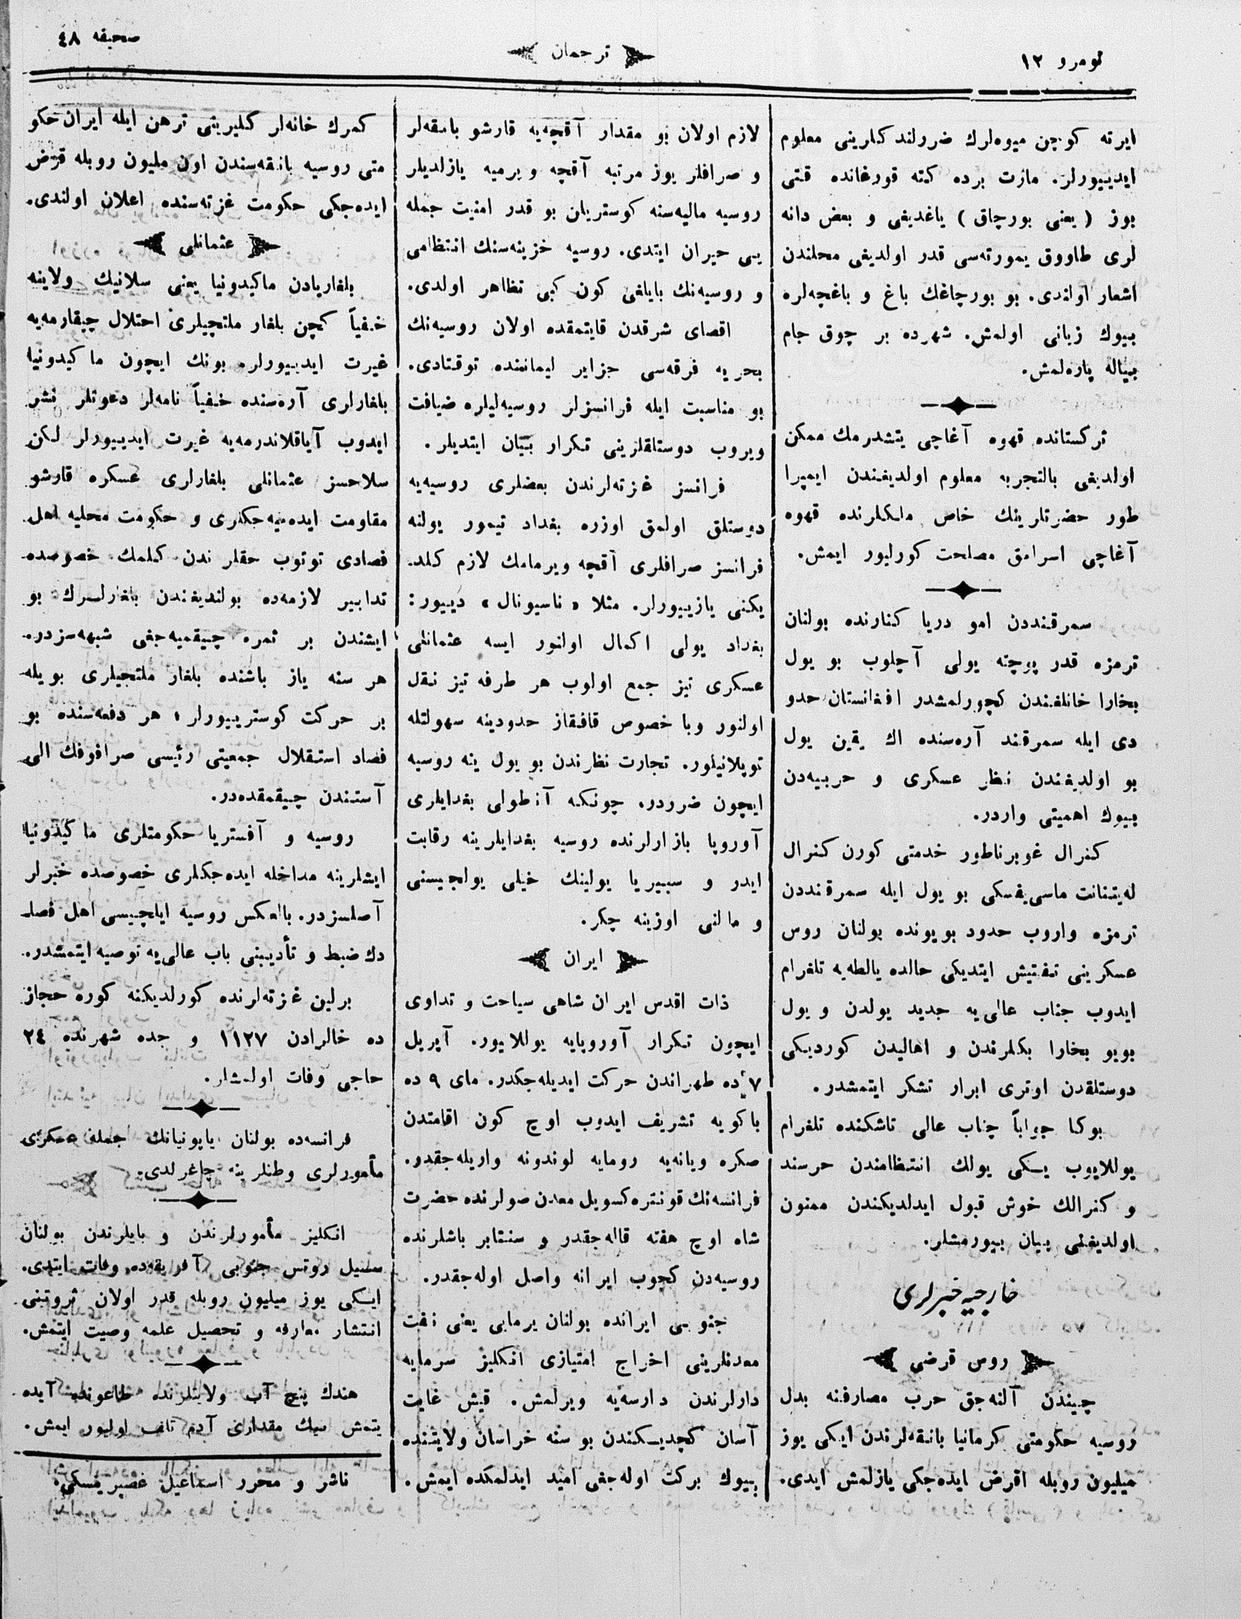 نومرو ١٢
ترجمان
صحیفه ٤٨
ایرته کوچن میوه‌لرك ضررلندکلرینی معلوم
ایدییورلر. مازت برده کته قورغانده قتی
بوز ( یعنی بورچاق ) یاغدیغی و بعض دانه
لری طاووق یمورته‌سی قدر اولدیغی محلندن
اشعار اولندی. بو بورچاغك باغ و باغچه‌لره
بیوك زیانی اولمش. شهرده بر چوق جام
پیاله پاره‌لمش.
ترکستانده قهوه آغاچی یتشدرمك ممکن
اولدیغی بالتجربه معلوم اولدیغندن ایمپرا
طور حضرتلرینك خاص ملکلرنده قهوه
آغاچی اسرامق مصلحت کورلیور ایمش.
سمرقنددن امو دریا کنارنده بولنان
ترمزه قدر پوچته یولی آچلوب بو یول
بخارا خانلغندن کچورلمشدر افغانستان حدو
دی ایله سمرقند آره‌سنده اك یقین یول
بو اولدیغندن نظر عسکری و حربیه‌دن
بیوك اهمیتی واردر.
کنرال غوبرناطور خدمتی کورن کنرال
له‌یتنانت ماسی‌یفسکی بو یول ایله سمرقنددن
ترمزه واروب حدود بویونده بولنان روس
عسکرینی تفتیش ایتدیکی حالده یالطه‌یه تلغرام
ایدوب جناب عالی‌یه جدید یولدن و یول
بویو بخارا بکلرندن و اهالیدن کوردیکی
دوستلقدن اوتری ابرار تشکر ایتمشدر.
بوکا جواباً جناب عالی تاشکنده تلغرام
یوللایوب یکی یولك انتظامندن خرسند
و کنرالك خوش قبول ایدلدیکندن ممنون
اولدیغنی بیان بیورمشلر.
خارجیه خبرلری
روس قرضی
چیندن آلنه‌جق حرب مصارفنه بدل
روسیه حکومتی کرمانیا بانقه‌لرندن ایکی یوز
میلیون روبله اقرض ایده‌جکی یازلمش ایدی.
لازم اولان بو مقدار آقچه‌یه قارشو بانقه‌لر
و صرافلر یوز مرتبه آقچه ویرمیه یازلدیلر
روسیه مالیه‌سنه کوستریلن بو قدر امنیت جمله
یی حیران ایتدی. روسیه خزینه‌سنك انتظامی
و روسیه‌نك بایلغی کون کبی تظاهر اولدی.
اقصای شرقدن قایتمقده اولان روسیه‌نك
بحریه فرقه‌سی جزایر لیماننده توقتادی.
بو مناسبت ایله فرانسزلر روسیه‌لیلره ضیافت
ویروب دوستلقلرینی تکرار بیان ایتدیلر.
فرانسز غزته‌لرندن بعضلری روسیه‌یه
دوستلق اولمق اوزره بغداد تیمور یولنه
فرانسز صرافلری آقچه ویرمامك لازم کلد
یکنی یازییورلر. مثلا « ناسیونال » دییور:
بغداد یولی اکمال اولنور ایسه عثمانلی
عسکری تیز جمع اولوب هر طرفه تیز نقل
اولنور وبا خصوص قافقاز حدودینه سهولتله
توپلانیلور. تجارت نظرندن بو یول ینه روسیه
ایچون ضرردر. چونکه آنطولی بغدایلری
آوروپا بازارلرنده روسیه بغدایلرینه رقابت
ایدر و سیبیریا یولینك خیلی یولجیسنی
و مالنی اوزینه چکر.
ایران
ذات اقدس ایران شاهی سیاحت و تداوی
ایچون تکرار آوروپایه یوللایور. آپریل
٧ ده طهراندن حرکت ایدیله‌جکدر. مای ٩ ده
باکویه تشریف ایدوب اوچ کون اقامتدن
صکره ویانه‌یه رومایه لوندونه واریله‌جقدر.
فرانسه‌نك قونتره‌کسویل معدن صولرنده حضرت
شاه اوچ هفته قاله‌جقدر و سنتابر باشلرنده
روسیه‌دن کچوب ایرانه واصل اوله‌جقدر.
جنوبی ایرانده بولنان یرمایی یعنی نفت
معدنلرینی اخراج امتیازی انکلیز سرمایه
دارلرندن دارسه‌یه ویرلمش. قیش غایت
آسان کچدیکندن بو سنه خراسان ولایتنده
بیوك برکت اوله‌جغی امید ایدلمکده ایمش.
کمرك خانه‌لر کلیریتی ترهن ایله ایران حکو
متی روسیه بانقه‌سندن اون ملیون روبله قرض
ایده‌جکی حکومت غزته‌سنده اعلان اولندی.
عثمانلی
بلغاریادن ماکیدونیا یعنی سلانیك ولاینه
خفیاً کچن بلغار ملتجیلری احتلال چیقارمه‌یه
غیرت ایدییورلر. بونك ایچون ماکیدونیا
بلغارلری آره‌سنده خفیاً نامه‌لر دعوتلر نشر
ایدوب آیاقلاندرمه‌یه غیرت ایدییورلر لکن
سلاحسز عثمانلی بلغارلری عسکره قارشو
مقاومت ایده‌میه‌جکلری و حکومت محلیه اهل
فصادی توتوب حقلرندن کلمك خصوصده
تدابیر لازمه‌ده بولندیغندن بلغارلرك بو
ایشندن بر ثمره چیقمیه‌جغی شبهه‌سزدر.
هر سنه یاز باشنده بلغار ملتجیلری بویله
بر حرکت کوستریییورلر، هر دفعه‌سنده بو
فصاد استقلال جمعیتی رئیسی صرافوفك الی
آستندن چیقمقده‌در.
روسیه و آفستریا حکومتلری ماکیدونیا
ایشلرینه مداخله ایده‌جکلری خصوصده خبرلر
آصلسزدر. بالعکس روسیه ایلچیسی اهل فصا
دك ضبط و تأدیبنی باب عالی‌یه توصیه ایتمشدر.
برلین غزته‌لرنده کورلدیکنه کوره حجاز
ده خالرادن ١١٢٧ و جده شهرنده ٢٤
حاجی وفات اولمشلر.
فرانسه‌ده بولنان یاپونیانك جمله عسکری
مأمورلری وطنلرینه چاغرلدی.
انکلیز مأمورلرندن و بایلرندن بولنان
سسیل رودس جنوبی آفریقه‌ده وفات ایتدی.
ایکی یوز میلیون روبله قدر اولان ثروتنی
انتشار معارفه و تحصیل علمه وصیت ایتمش.
هندك پنج آب ولایتلرنده طاعوندن آیده
یتمش بیك مقداری آدم تلف اولیور ایمش.
ناشر و محرر اسماعیل غصپرینسکی.